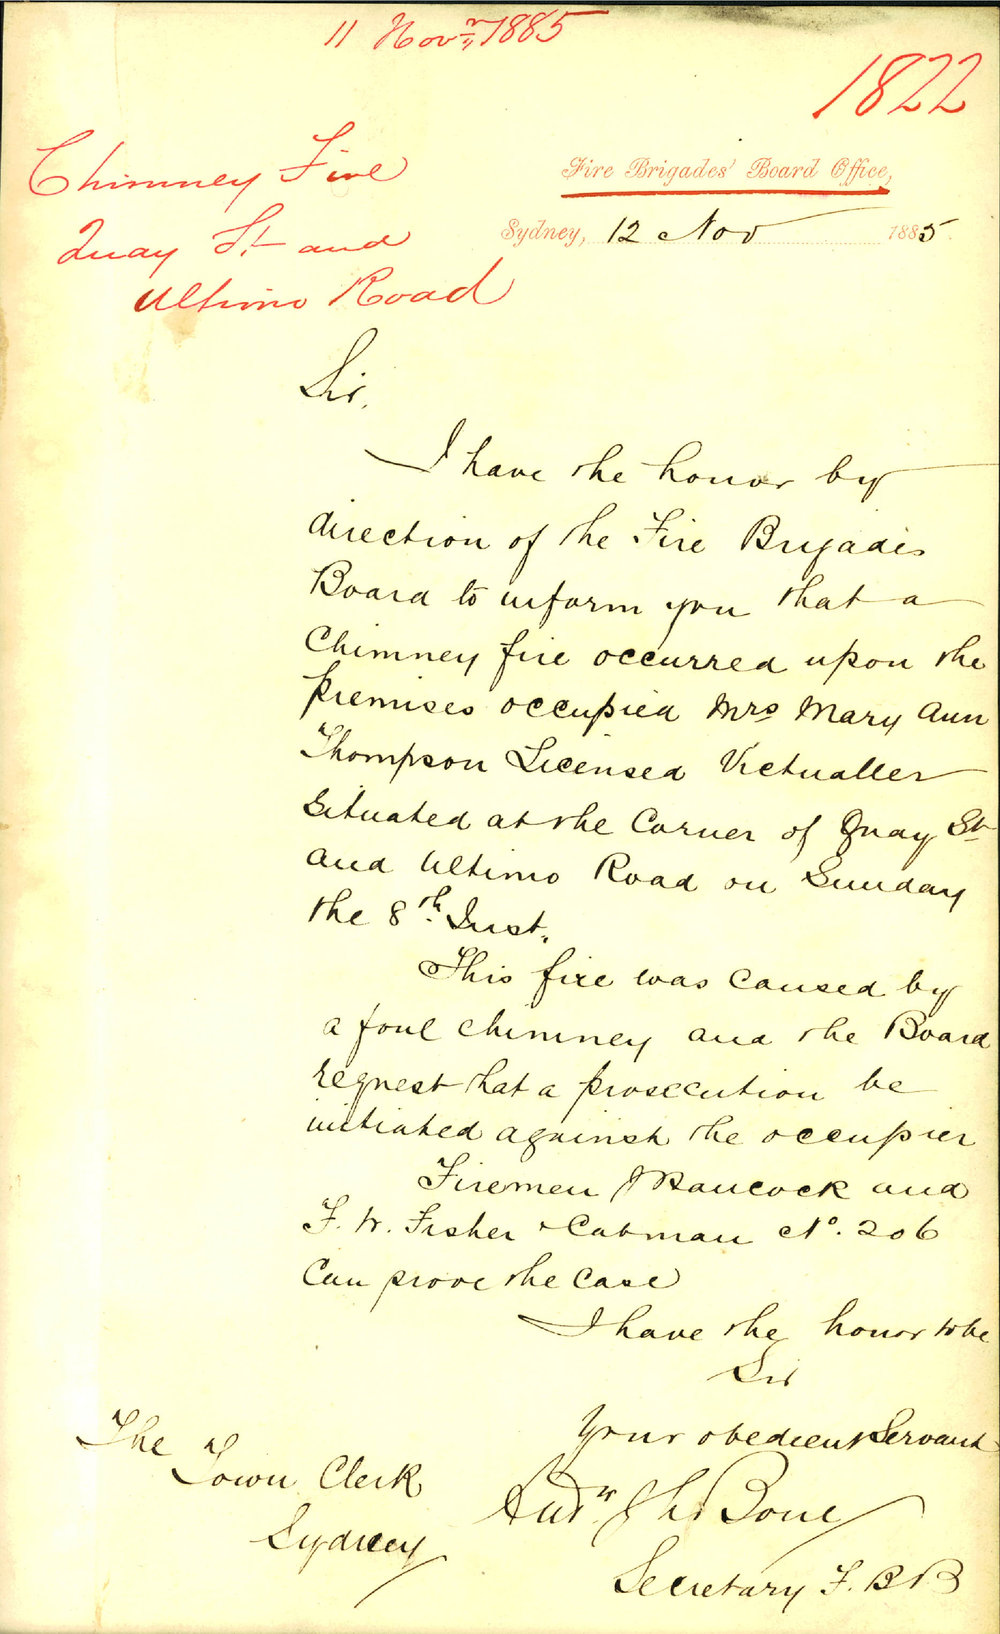 11 Novr 1885
1822
Chimney Fire
Quay St and
Ultimo Road
Fire Brigades' Board Office,
Sydney, 12 Nov 1885
Sir.
I have the honor by
direction of the Fire Brigades
Board to inform you that a
Chimney fire occurred upon the
premises occupied Mrs Mary Ann
Thompson Licensed Victualler
situated at the Corner of Quay St
and Ultimo Road on Sunday
the 8th Inst.
This fire was caused by
a foul chimney and the Board
request that a prosecution be
initiated against the occupier
Firemen Hancock and
F. W. Fisher Cabman No. 206
Can prove the Case
I have the honor to be
Sir
Your obedient Servant
Andr Bone
Secretary F. B B
The
Town Clerk
Sydney